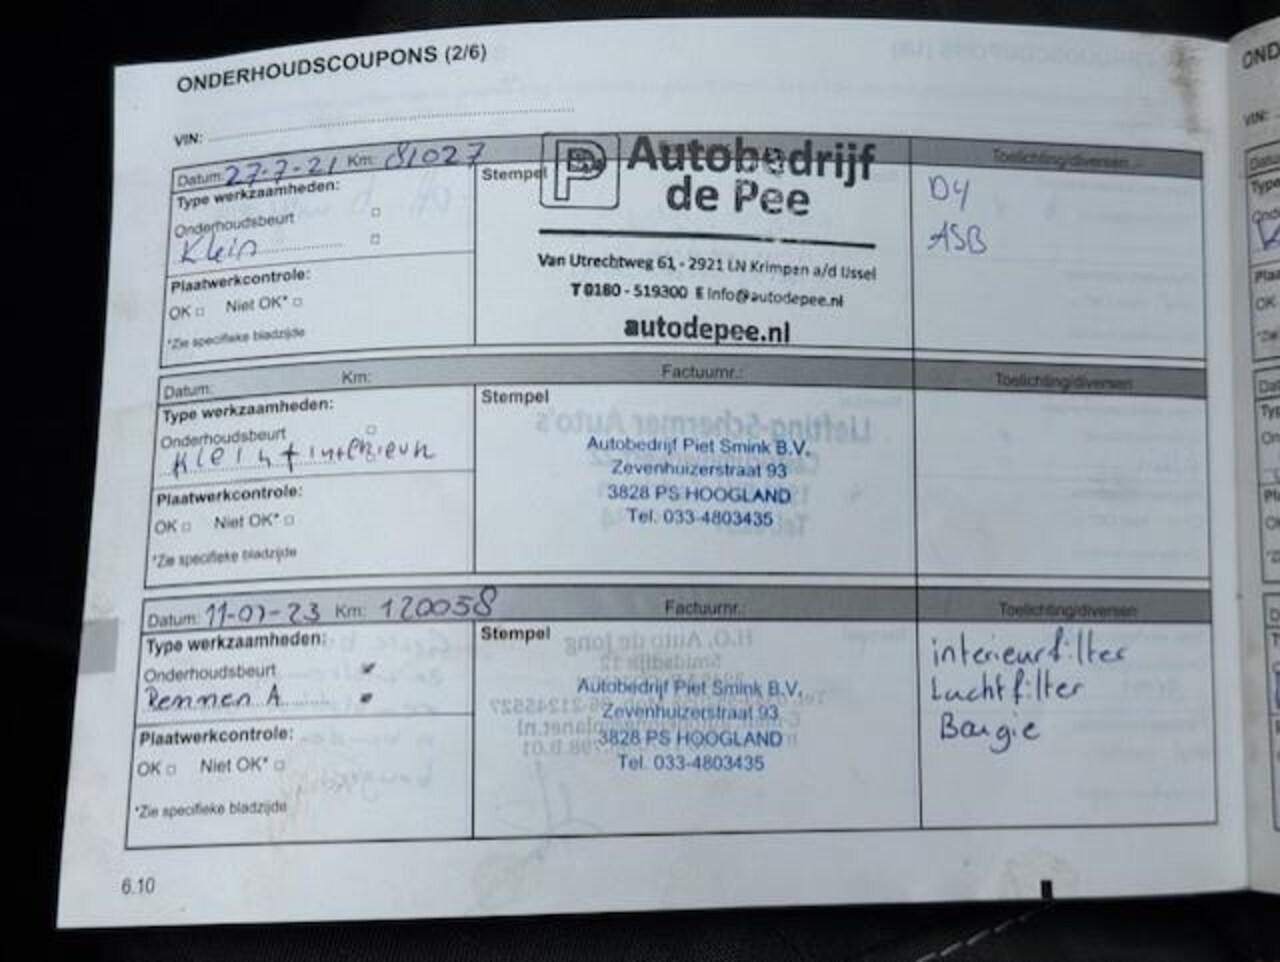 ONDERHOUDSCOUPONS (2/6)
VIN:
Datum: 27-7-21 Km: 81027
Toelichting/diversen
Type werkzaamheden:
Onderhoudsbeurt
Klein
Plaatwerkcontrole:
OK Niet OK*
*Zie specifieke bladzijde
Stempel
P Autobedrijf
de Pee
Van Utrechtweg 61 - 2921 LN Krimpen a/d IJssel
T 0180 - 519300 E info@autodepee.nl
autodepee.nl
D4
ASB
Datum: Km: Factuurnr.: Toelichting/diversen
Type werkzaamheden:
Onderhoudsbeurt
Klein + interieur
Plaatwerkcontrole:
OK Niet OK*
*Zie specifieke bladzijde
Stempel
Autobedrijf Piet Smink B.V.
Zevenhuizerstraat 93
3828 PS HOOGLAND
Tel. 033-4803435
Datum: 11-07-23 Km: 120058 Factuurnr.: Toelichting/diversen
Type werkzaamheden:
Onderhoudsbeurt
Remmen A
Plaatwerkcontrole:
OK Niet OK*
*Zie specifieke bladzijde
Stempel
Autobedrijf Piet Smink B.V.
Zevenhuizerstraat 93
3828 PS HOOGLAND
Tel. 033-4803435
interieurfilter
Luchtfilter
Bougie
6.10